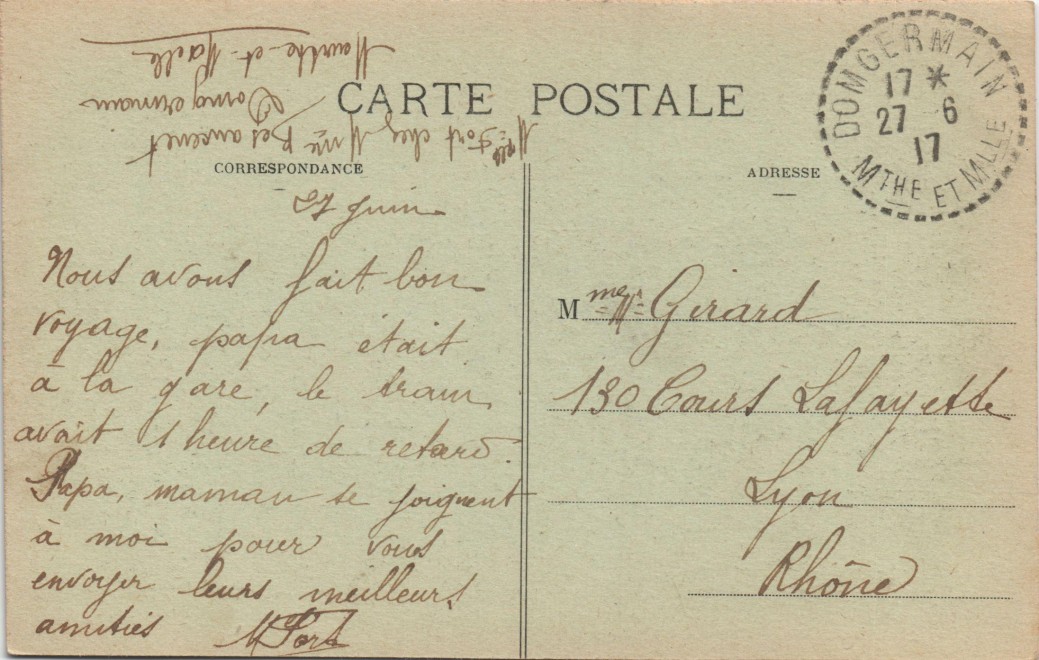 CARTE POSTALE
CORRESPONDANCE
ADRESSE
DOMGERMAIN
17 *
27 6
17
MTHE ET MLLE
Mlle Fort chez Mme Besancenet
Domgermain
Meurthe-et-Melle
27 Juin
Nous avons fait bon
voyage, papa était
à la gare, le train
avait 1 heure de retard.
Papa, maman se joignent
à moi pour vous
envoyer leurs meilleurs
amitiés M Fort
Mme Girard
130 Cours Lafayette
Lyon
Rhône